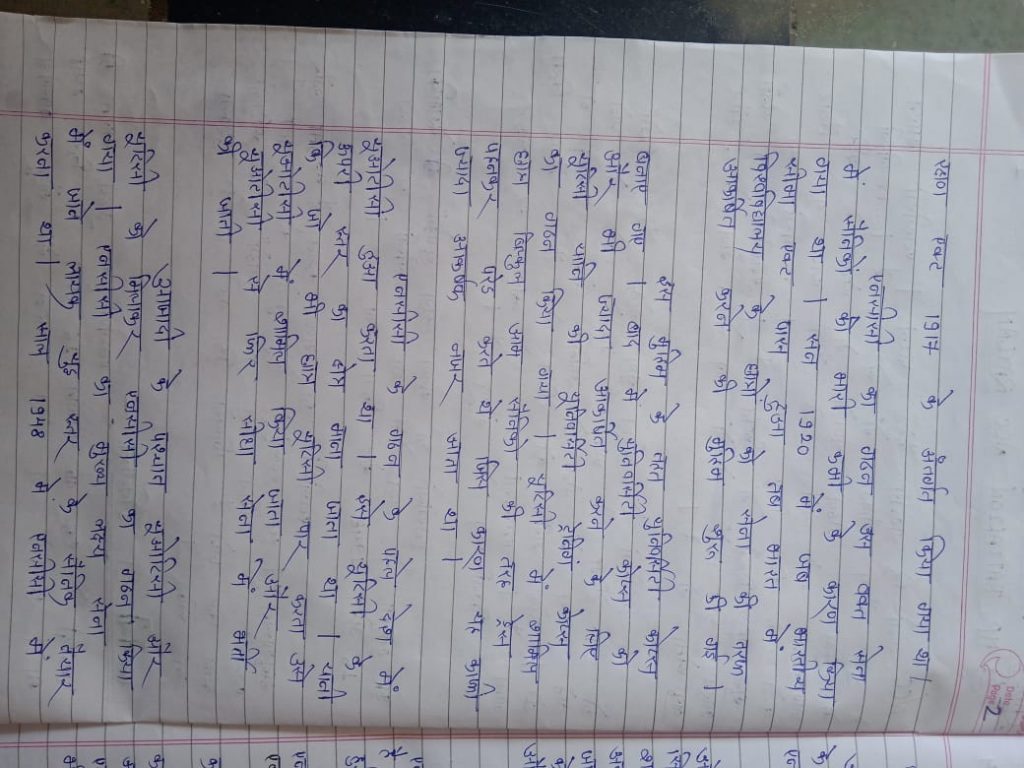 Date
Page 2
रक्षा एक्ट 1917 के अंतर्गत किया गया था।
एनसीसी का गठन उस वक्त सेना
में सैनिकों की भारी कमी के कारण किया
गया था। सन 1920 में जब भारतीय
एक्ट पास हुआ तब भारत में
विश्वविद्यालय के छात्रों को सेना की तरफ
आकर्षित करने की मुहिम शुरू की गई।
इस मुहिम के तहत यूनिवर्सिटी कोर्प्स
बनाए गए। बाद में यूनिवर्सिटी कोर्प्स को
और भी ज्यादा आकर्षित करने के लिए
यूटीसी यानि की यूनिवर्सिटी ट्रेनिंग कोर्प्स
का गठन किया गया। यूटीसी में शामिल
छात्र बिल्कुल आम सैनिकों की तरह ड्रेस
पहनकर परेड करते थे जिस कारण यह काफी
ज्यादा आकर्षक नजर आता था।
एनसीसी के गठन के पहले देश में
यूओटीसी हुआ करता था। इसे यूटीसी के
ऊपरी स्तर का क्षेत्र माना जाता था। यानी
कि जो भी छात्र यूटीसी पार करता उसे
यूओटीसी में शामिल किया जाता और
यूओटीसी से फिर सीधा सेना में भर्ती
की जाती।
आजादी के पश्चात यूओटीसी और
यूटीसी को मिलाकर एनसीसी का गठन किया
गया। एनसीसी का मुख्य लक्ष्य सेना
में जाने लायक स्तर के सैनिक तैयार
करना था। साल 1948 में एनसीसी में